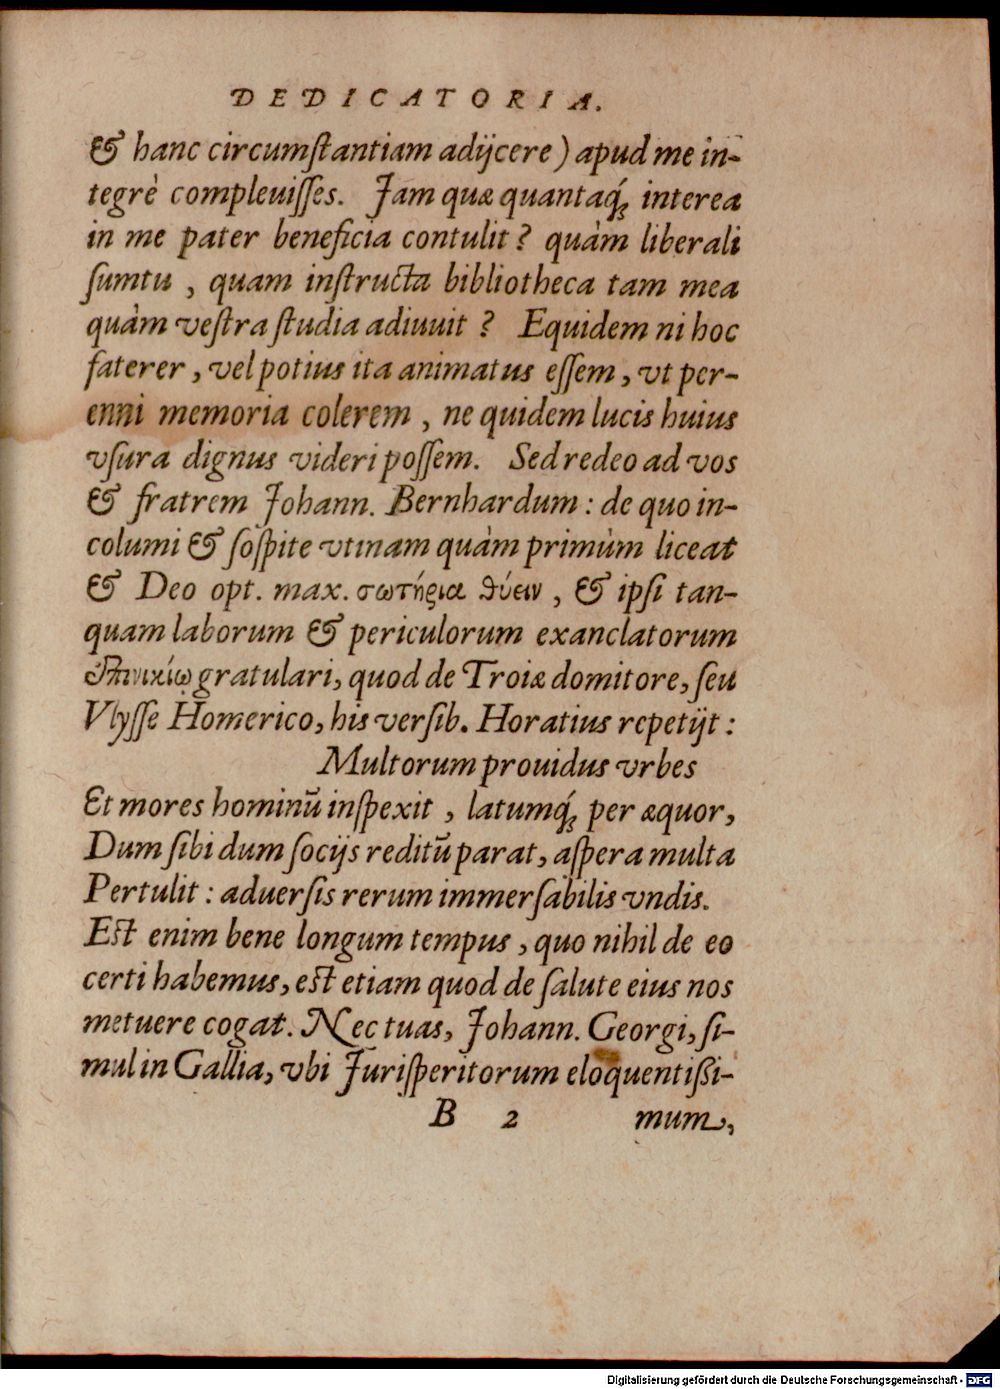 DEDICATORIA.
& hanc circumſtantiam adijcere) apud me in-
tegrè compleuiſſes. Jam quæ quantaq́; interea
in me pater beneficia contulit? quàm liberali
ſumtu, quam inſtructa bibliotheca tam mea
quàm veſtra ſtudia adiuuit? Equidem ni hoc
faterer, vel potius ita animatus eſſem, vt per-
enni memoria colerem, ne quidem lucis huius
vſura dignus videri poſſem. Sed redeo ad vos
& fratrem Johann. Bernhardum: de quo in-
columi & ſoſpite vtinam quàm primùm liceat
& Deo opt. max. σωτήρια θύειν, & ipſi tan-
quam laborum & periculorum exanclatorum
ἐπινικίῳ gratulari, quod de Troiæ domitore, ſeu
Vlyſſe Homerico, his verſib. Horatius repetijt:
Multorum prouidus vrbes
Et mores hominū inſpexit, latumq́; per æquor,
Dum ſibi dum ſocijs reditū parat, aſpera multa
Pertulit: aduerſis rerum immerſabilis vndis.
Eſt enim bene longum tempus, quo nihil de eo
certi habemus, eſt etiam quod de ſalute eius nos
metuere cogat. Nec tuas, Johann. Georgi, ſi-
mul in Gallia, vbi Juriſperitorum eloquentißi-
B 2 mum,
Digitalisierung gefördert durch die Deutsche Forschungsgemeinschaft - DFG